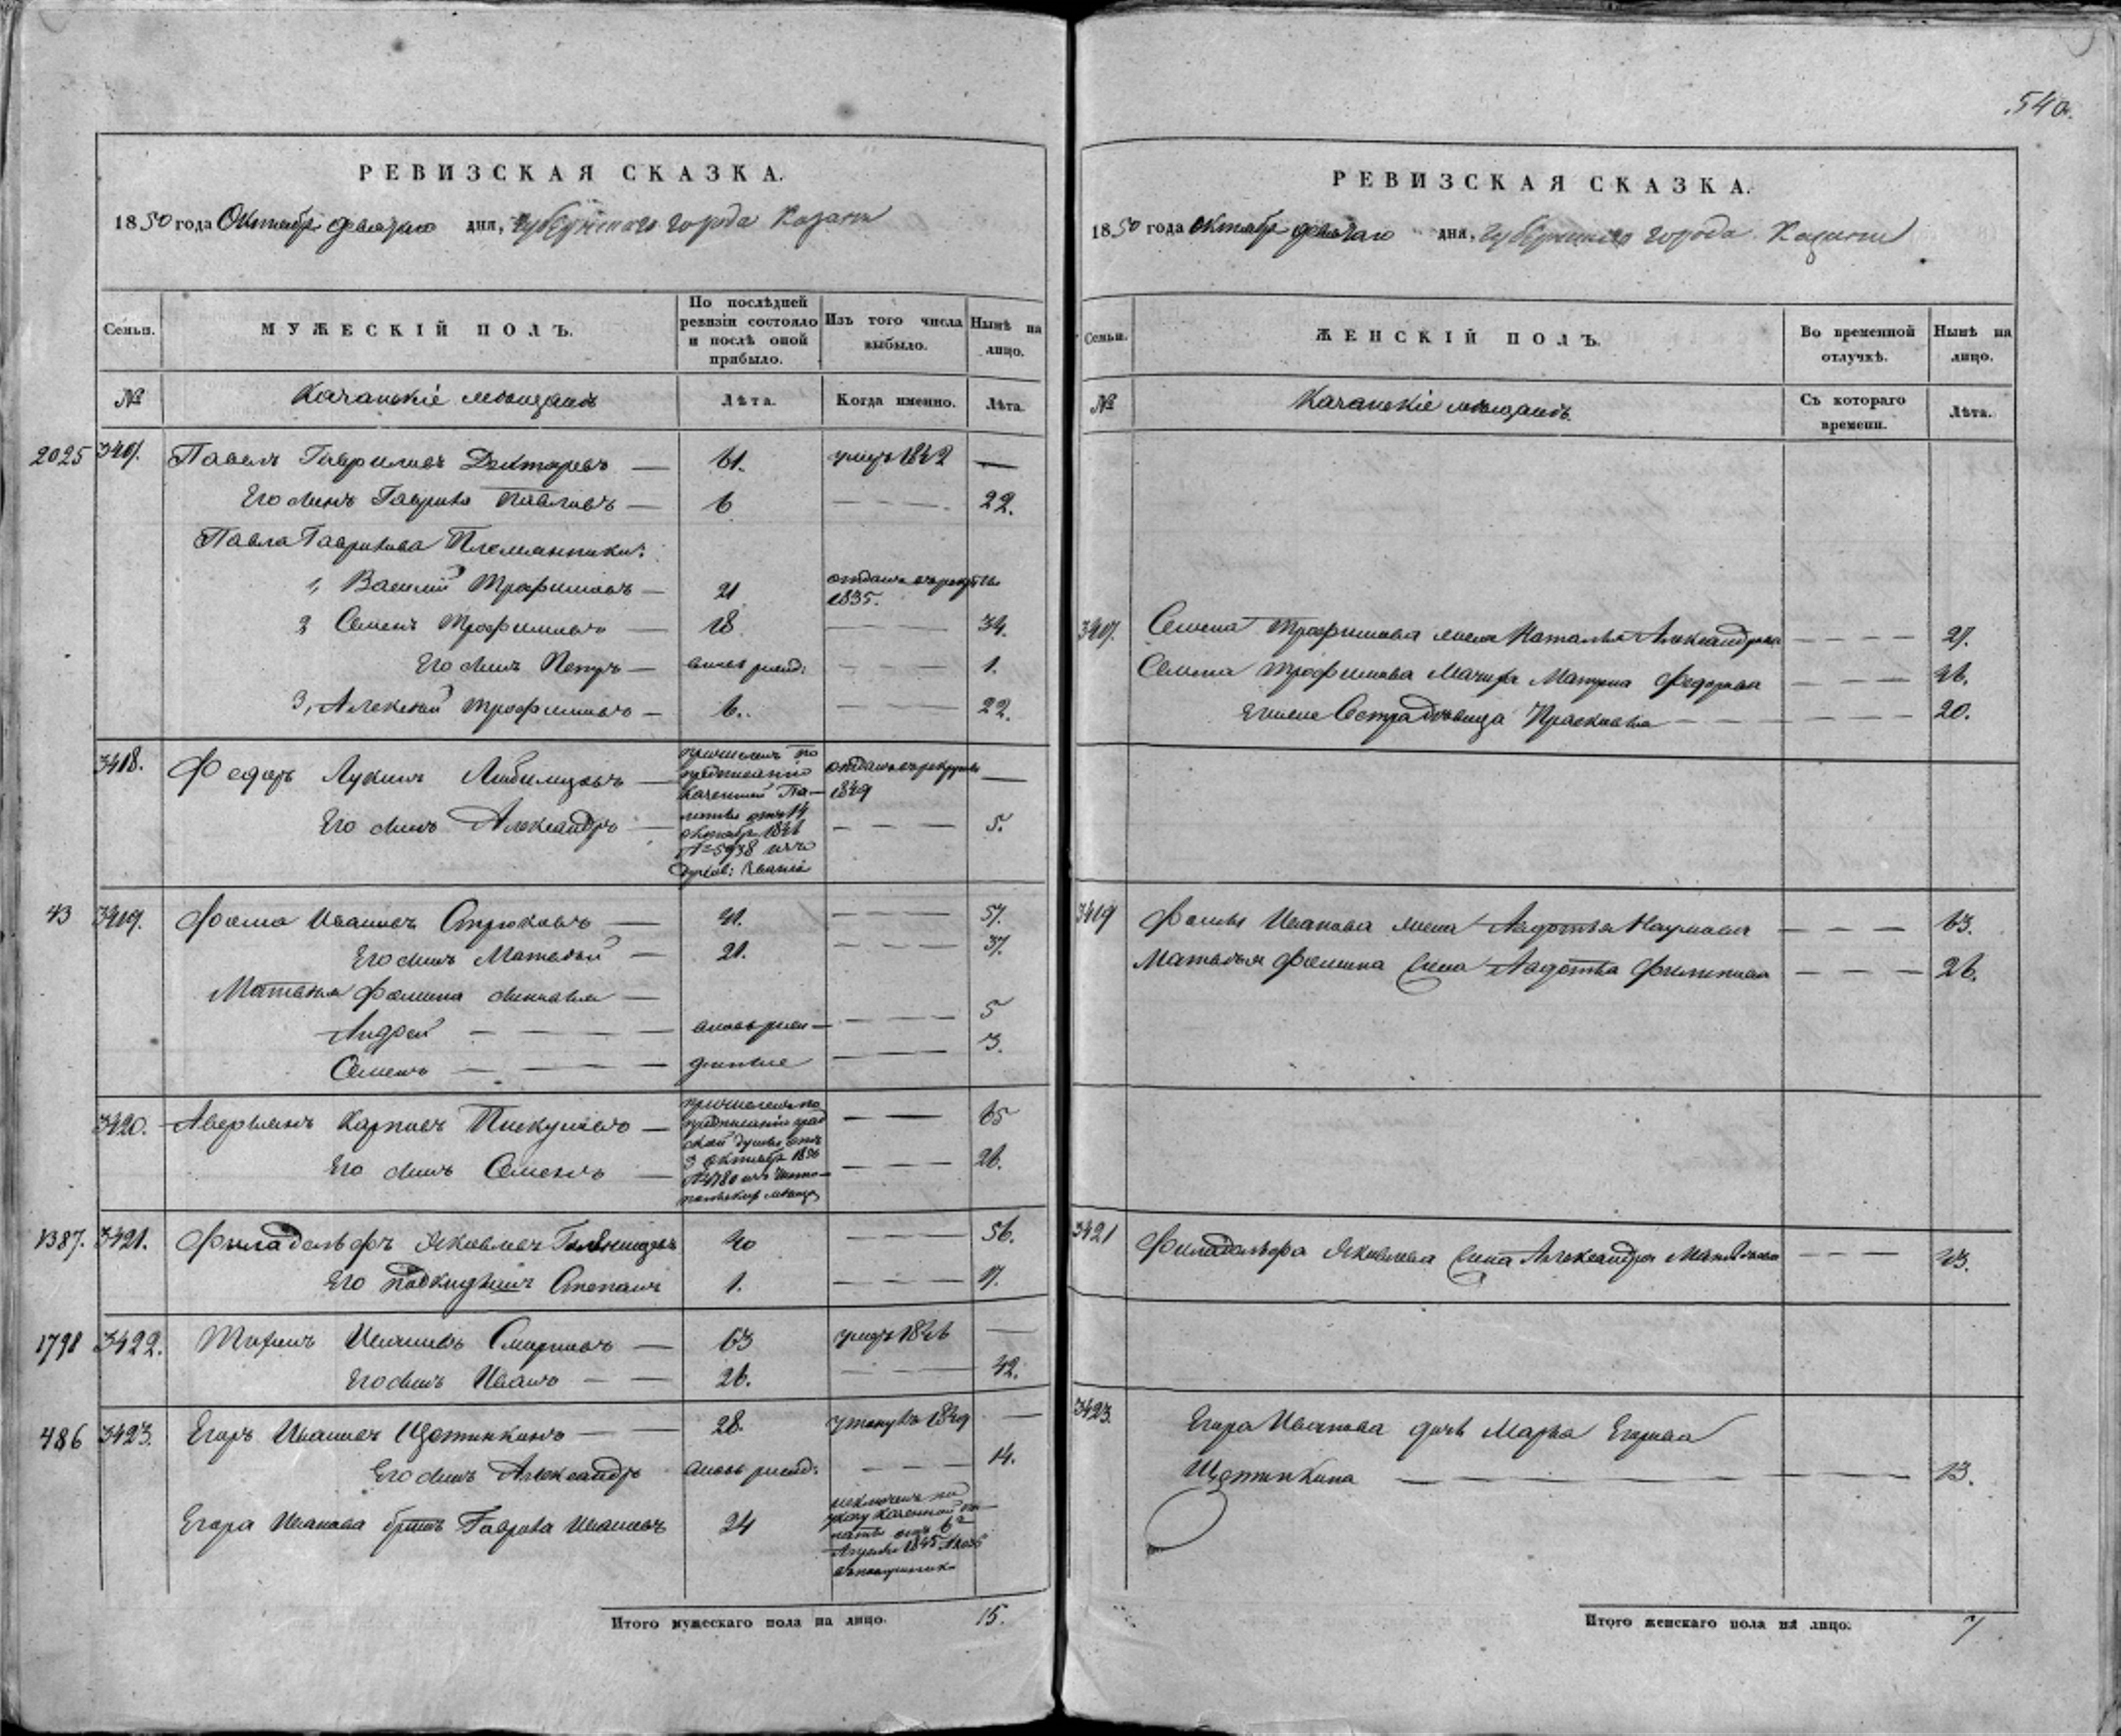 540.
РЕВИЗСКАЯ СКАЗКА.
1850 года Октября девятаго дня, Губернскаго города Казани
Семьи. МУЖЕСКІЙ ПОЛЪ. По послѣдней ревизіи состояло и послѣ оной прибыло. Изъ того числа выбыло. Нынѣ на лицо.
№ Казанскіе мѣщане Лѣта. Когда именно. Лѣта.
2025 3417. Павелъ Гавриловъ Дехтяревъ — 61. умеръ 1842 —
Его сынъ Гаврила Павловъ — 6 — — — 22.
Павла Гаврилова Племянники:
1, Василий Трофимовъ — 21 отданъ въ рекруты 1835.
2 Семенъ Трофимовъ — 18 — — — 34.
Его сынъ Петръ — вновь рожд: — — — 1.
3, Алексѣй Трофимовъ — 6. — — — 22.
3418. Федоръ Лукинъ Любимцовъ — причисленъ по отданъ въ рекруты —
предписанію 1849
Казенной Па-
Его сынъ Александръ — латы отъ 14 — — — 5.
октября 1846
№ 5938 изъ
духов: званія
43 3419. Фома Ивановъ Стрюковъ — 41. — — — 57.
Его сынъ Матвѣй — 21. — — — 37.
Матвѣя Фомина сыновья —
Андрей — — — вновь рож- — — — 5
Семенъ — — — денные — — — 3.
3420. Аверьянъ Карповъ Пискуновъ — причисленъ по — — 65
предписанію град
ской думы отъ
Его сынъ Семенъ — 3 октября 1850 — — — 26.
№ 4780 изъ
мѣщанъ
1387. 3421. Филадельфъ Яковлевъ 40 — — — 56.
Его подкидышъ Степанъ 1. — — — 17.
1798 3422. Ивановъ Смирновъ — 63 умеръ 1846 —
Его сынъ Иванъ — — 26. — — — 42.
486 3423. Егоръ Ивановъ Щетинкинъ — — 28. утонулъ 1849 —
Его сынъ Александръ вновь рожд: — — — 14.
Егора Иванова братъ Гаврила Ивановъ 24 исключенъ по
указу Казенной па-
латы отъ 6
Апрѣля 1845
Итого мужескаго пола на лицо. 15.
РЕВИЗСКАЯ СКАЗКА.
1850 года октября девятаго дня, Губернскаго города Казани
Семьи. ЖЕНСКІЙ ПОЛЪ. Во временной отлучкѣ. Нынѣ на лицо.
№ Казанскіе мѣщане Съ котораго времени. Лѣта.
3417. Семена Трофимова жена Наталья Александрова — — — — 27.
Семена Трофимова Мачиха Матрена Федорова — — — —
Сестра дѣвица Прасковья — — — — 20.
3419 Фомы Иванова жена Авдотья Наумова — — — 63.
Матвѣя Фомина жена Авдотья Филипова — — — 26.
3421 Филадельфа Яковлева жена Александра Матвѣева — — — 43.
3423. Егора Иванова дочь Марья Егорова
Щетинкина — — — — 13.
Итого женскаго пола на лицо. 7